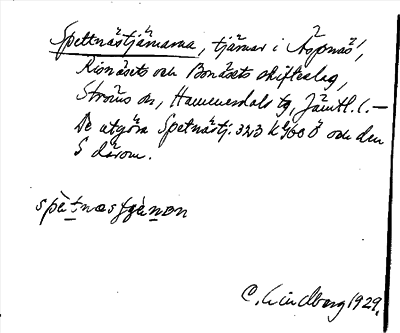 Spettnästjärnarna, tjärnar i Aspnäs',
Risnäsets och Bonäsets skifteslag,
Ströms sn, Hammerdals tg, Jämtl. l. —
De utgöra Spetnästj. 323 k 4/60 Ö och den
S därom.
spètnæstjænan
C. Lindberg 1929.